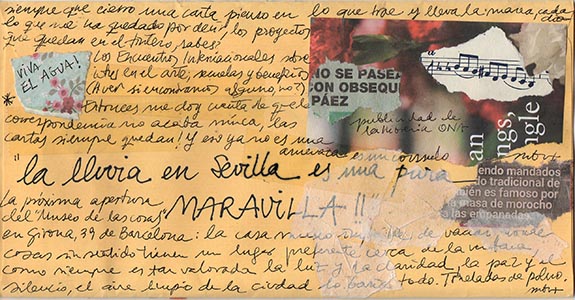 siempre que cierro una carta pienso en lo que trae y lleva la marea, cada
lo que no ha quedado por decir, los proyectos
que quedan en el tintero, sabes?
VIVA
EL AGUA!
Los Encuentros Internacionales sobre
en el arte, secuelas y beneficios
(A ver si encontramos alguno, no?)
* Entonces me doy cuenta de que la
correspondencia no acaba nunca, las
cartas siempre quedan! Y eso ya no es una
amenaza es un consuelo
NO SE PASEA
CON OBSEQU
PÁEZ
publicidad de
an
ngs,
ngle
"la lluvia en Sevilla es una pura
MARAVILLA!!"
endo mandados
do tradicional de
ién es famoso por
masa de morocho
a las empanadas.
La próxima apertura
del "Museo de las cosas"
en Girona, 39 de Barcelona: la casa museo
cosas sin sentido tienen un lugar preferente cerca de la
como siempre estar valorada la luz y la claridad, la paz y el
silencio, el aire limpio de la ciudad lo todo. Toneladas de polvo.